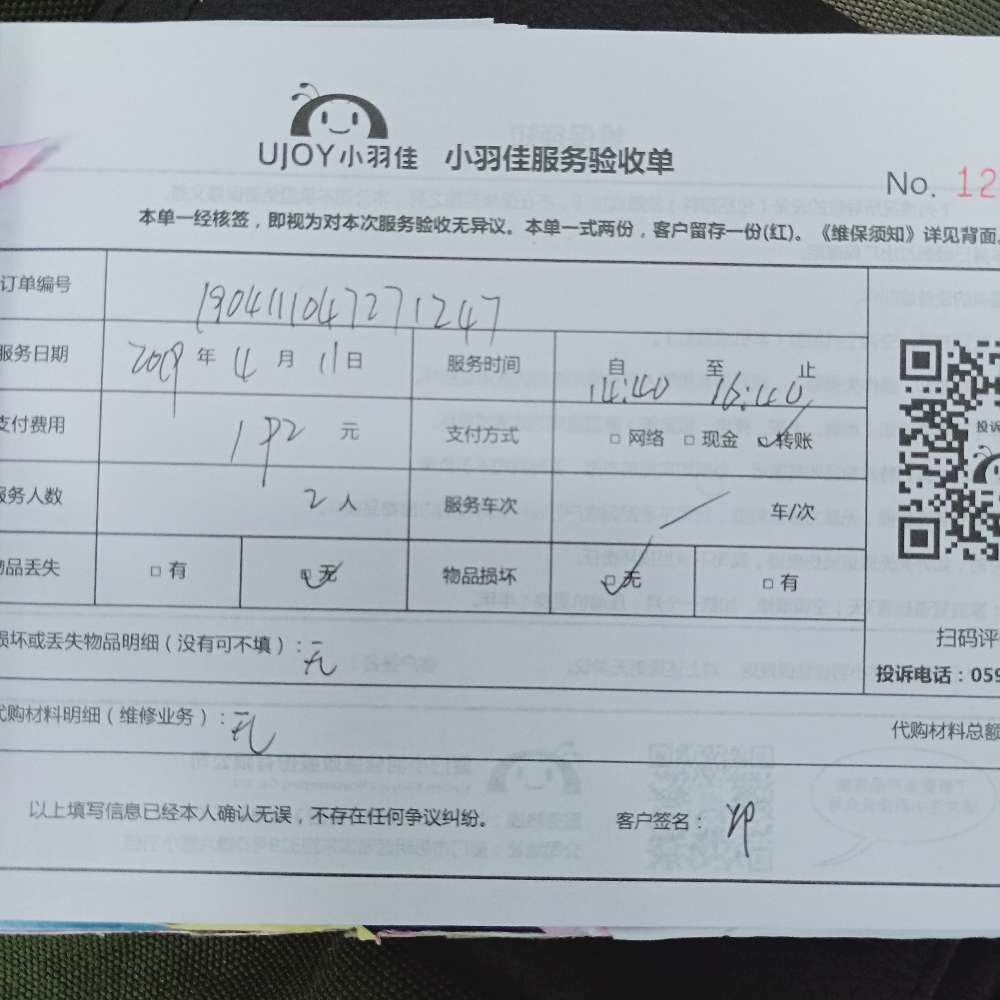 UJOY小羽佳 小羽佳服务验收单
No. 12
本单一经核签，即视为对本次服务验收无异议。本单一式两份，客户留存一份(红)。《维保须知》详见背面。
订单编号 1904111047271247
服务日期 2019年4月11日 服务时间 自14:40至16:40止
支付费用 192元 支付方式 □网络 □现金 ☑转账
服务人数 2人 服务车次 / 车/次
物品丢失 □有 ☑无 物品损坏 ☑无 □有
损坏或丢失物品明细（没有可不填）：无
扫码评
投诉
投诉电话：059
代购材料明细（维修业务）：无
代购材料总额
以上填写信息已经本人确认无误，不存在任何争议纠纷。 客户签名：